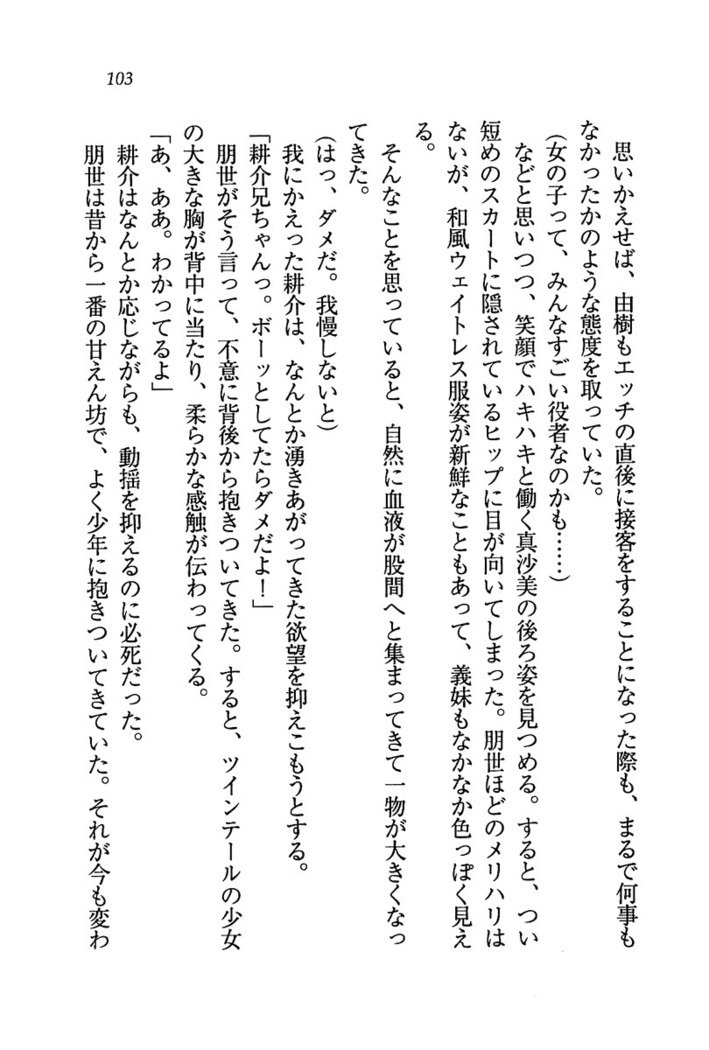 103
思いかえせば、由樹もエッチの直後に接客をすることになった際も、まるで何事も
なかったかのような態度を取っていた。
(女の子って、みんなすごい役者なのかも……)
などと思いつつ、笑顔でハキハキと働く真沙美の後ろ姿を見つめる。すると、つい
短めのスカートに隠されているヒップに目が向いてしまった。朋世ほどのメリハリは
ないが、和風ウェイトレス服姿が新鮮なこともあって、義妹もなかなか色っぽく見え
る。
そんなことを思っていると、自然に血液が股間へと集まってきて一物が大きくなっ
てきた。
(はっ、ダメだ。我慢しないと)
我にかえった耕介は、なんとか湧きあがってきた欲望を抑えこもうとする。
「耕介兄ちゃんっ。ボーッとしてたらダメだよ！」
朋世がそう言って、不意に背後から抱きついてきた。すると、ツインテールの少女
の大きな胸が背中に当たり、柔らかな感触が伝わってくる。
「あ、ああ。わかってるよ」
耕介はなんとか応じながらも、動揺を抑えるのに必死だった。
朋世は昔から一番の甘えん坊で、よく少年に抱きついてきていた。それが今も変わ